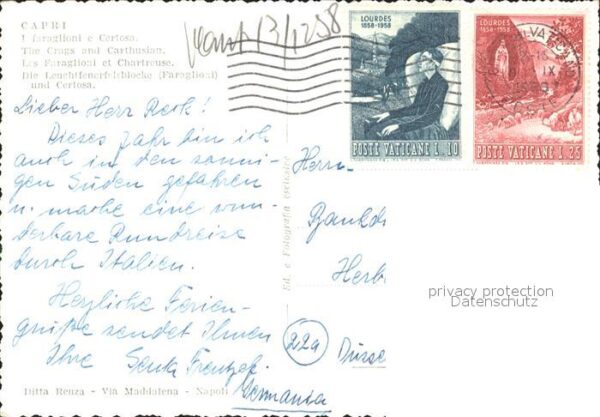 CAPRI
I faraglioni e Certosa.
The Crags and Carthusian.
Les Faraglioni et Chartreuse.
Die Leuchtfenerfelblocke (Faraglioni)
und Certosa.
13/1258
LOURDES
1858-1958
POSTE VATICANE L. 10
LOURDES
1858-1958
POSTE VATICANE L. 25
Lieber Herr
Dieses Jahr bin ich
auch in den sonni-
gen Süden gefahren
u. mache eine wun-
derbare Rundreise
durch Italien.
Herzliche Ferien-
grüße sendet Ihnen
Ihre
Ditta Renza - Via Maddalena - Napoli
Ed. e Fotografia esclusive
Herrn
Bankdi
Herb
22a
Düsse
Germania
privacy protection
Datenschutz